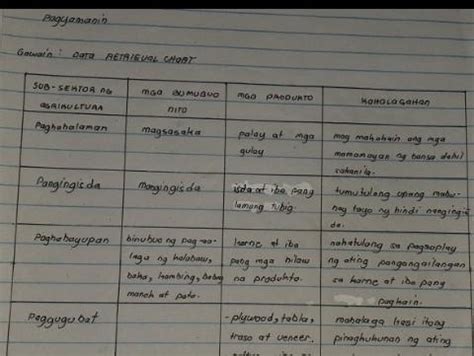 Pagyamanin
Gawain: DATA RETRIEVAL CHART
SUB-SEKTOR NG AGRIKULTURA
MGA BUMUBUO NITO
MGA PRODUKTO
KAHALAGAHAN
Paghahalaman
magsasaka
palay at mga
gulay
mag makahain ang mga
mamamayan ng bansa dahil
sakanila.
Pangingisda
mangingisda
isda at iba pang
lamang tubig.
tumutulong upang mabu-
hay tayo ng hindi nangingis
da.
Paghahayupan
binubuo ng pag-aa-
laga ng kalabaw,
baka, kambing, baboy
manok at pato.
karne at iba
pang mga hilaw
na produkto.
nakatulong sa pagsuplay
ng ating pangangailangan
sa karne at iba pang
pagkain.
Paggugubat
-plywood, tabla,
troso at veneer.
mahalaga kasi itong
pinagkukunan ng ating